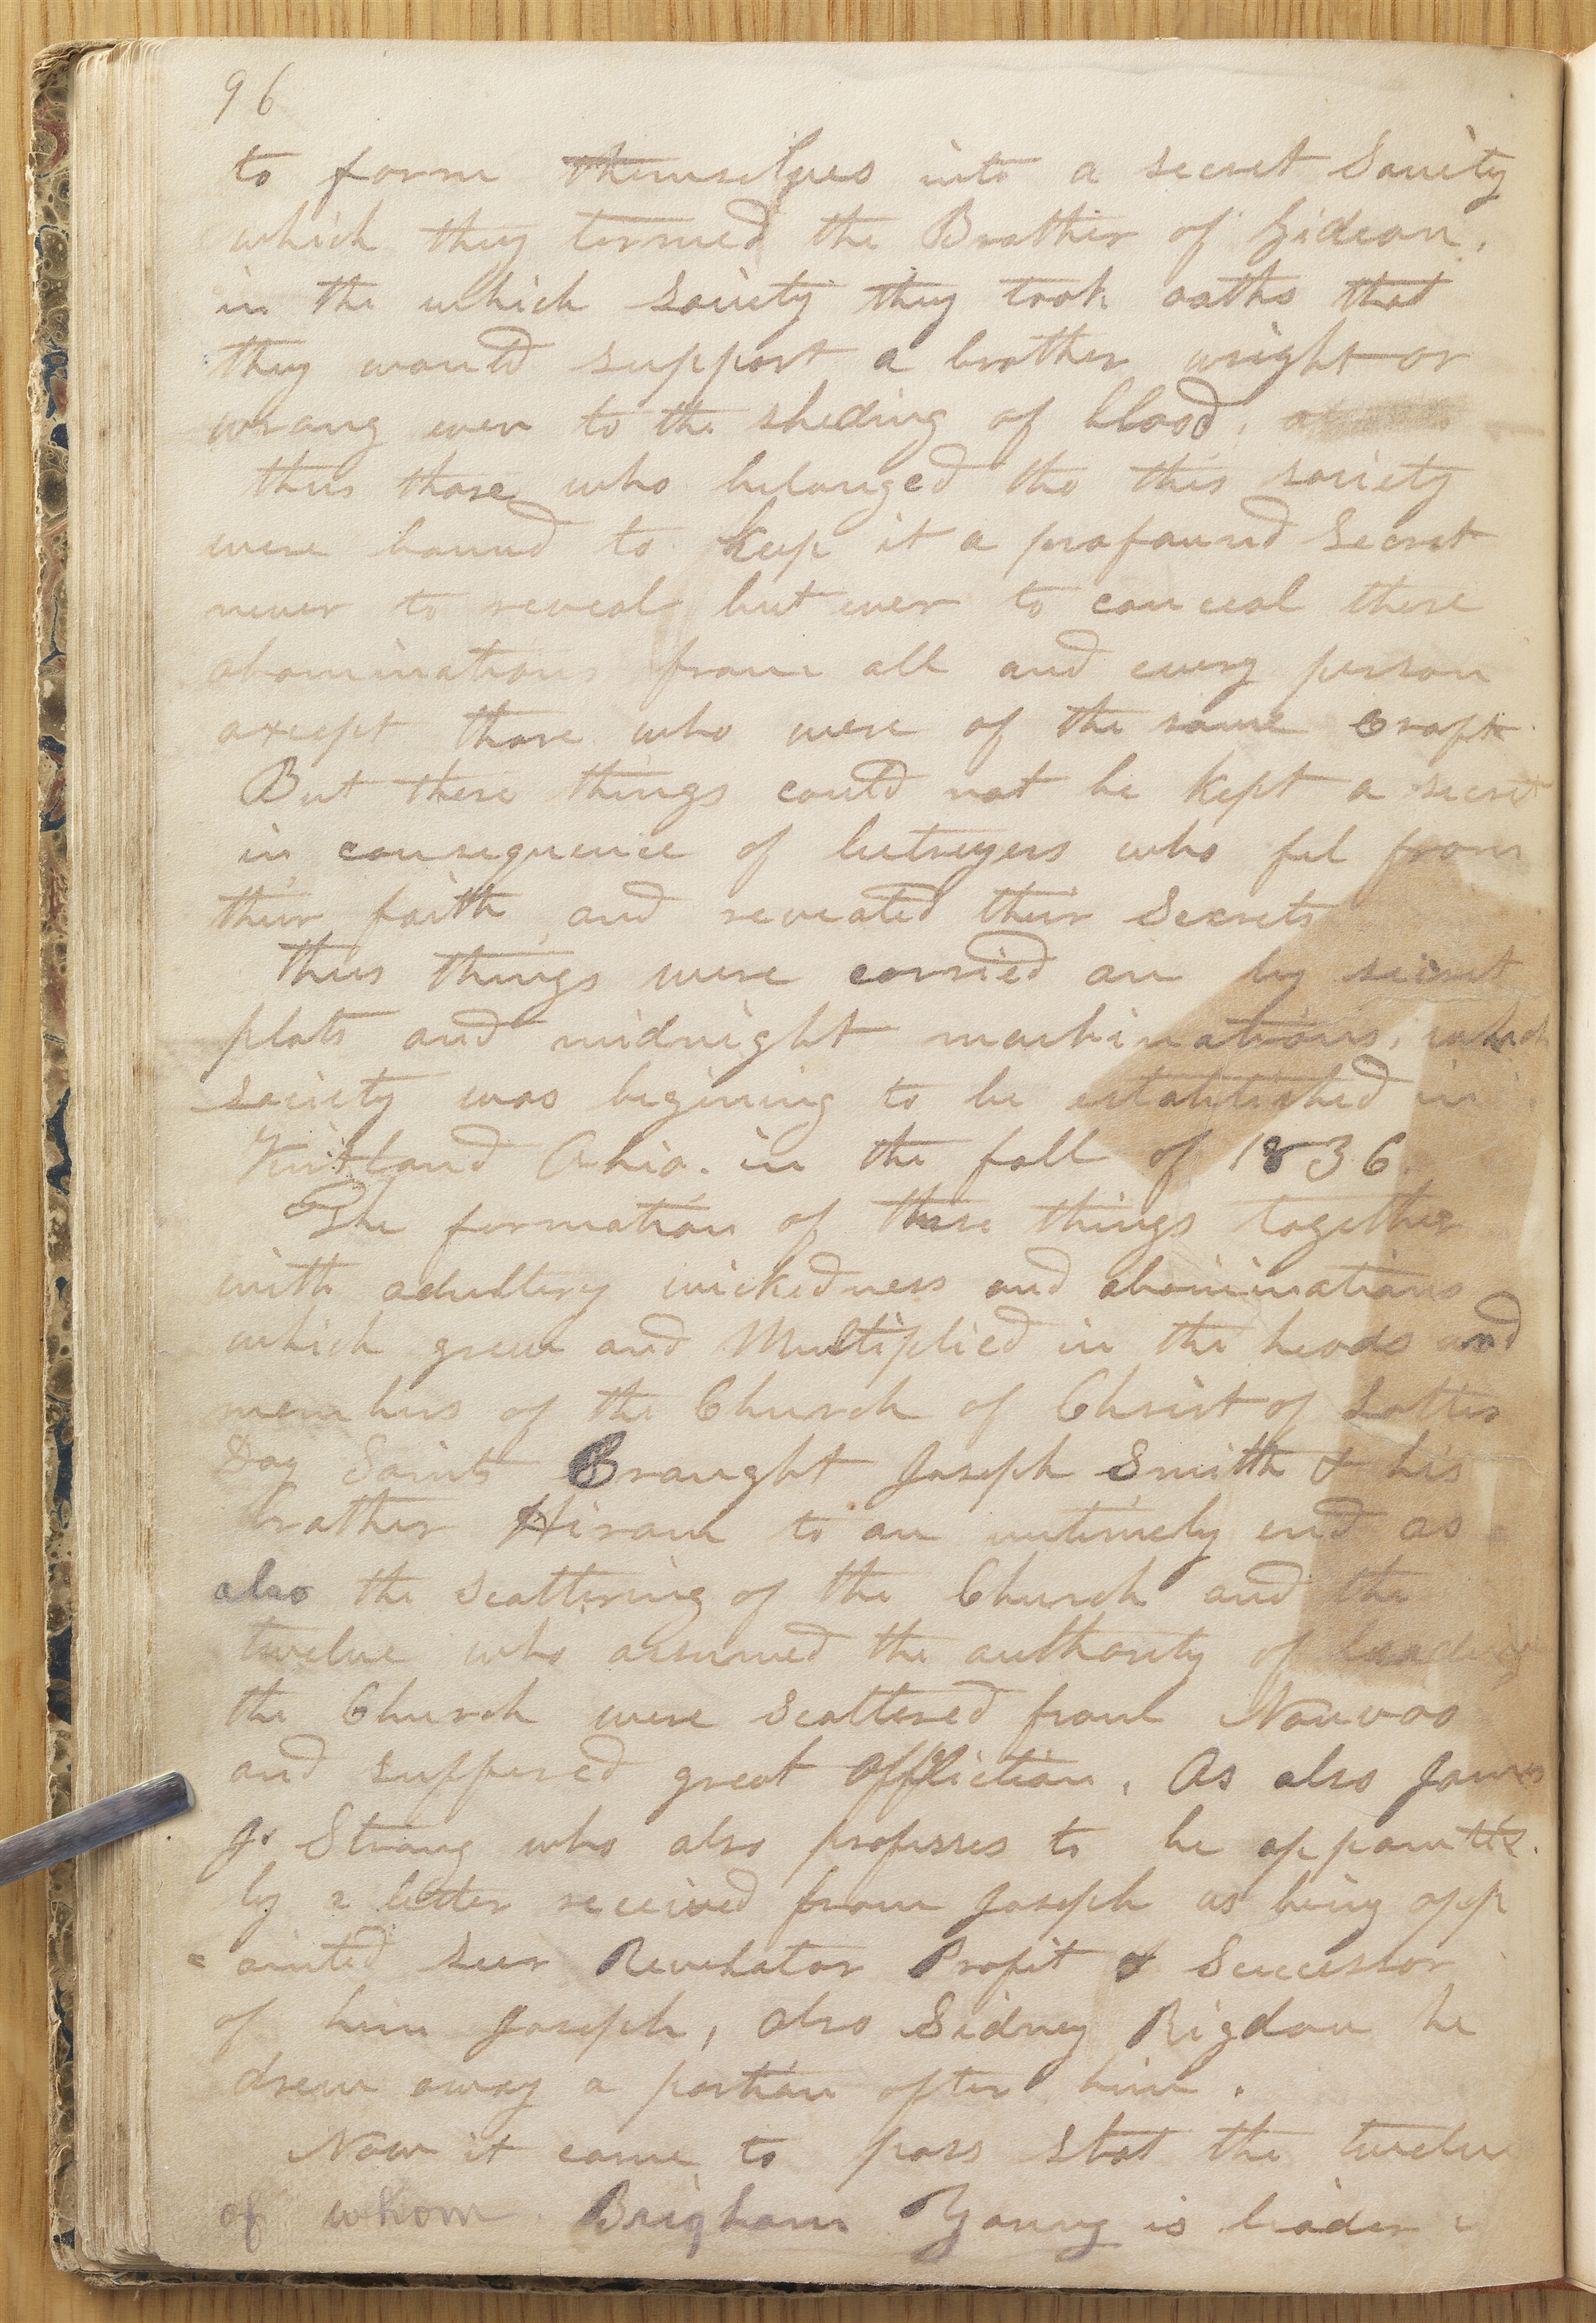 96
to form themselves into a secret Society
which they termed the Brother of Gideon,
in the which society they took oaths that
they would support a brother wright or
wrong even to the sheding of blood,
thus those who belonged tho this society
were bound to keep it a profound Secret
never to reveal but ever to conceal these
abominations from all and every person
axcept those who were of the same craft.
But these things could not be kept a secret
in consequence of betrayers who fel from
their faith and reveated their Secrets
thus things were carried on by secret
plots and midnight machinations, which
society was begining to be established in
Kirtland Ohio. in the fall of 1836.
The formation of these things together
with adultery wickedness and abominations
which grew and Multiplied in the heads and
members of the Church of Christ of Latter
Day Saints Braught Joseph Smith & his
brother Hiram to an untimely end as
also the scattering of the Church and the
twelve who assumed the authority of leading
the Church were scattered from Nauvoo
and suffered great affliction. As also James
J. Strang who also professes to be appointed.
by a letter received from Joseph as being app
= ointed seer Revelator Profit & Successor
of him Joseph, also Sidney Rigdon he
drew away a portion after him.
Now it came to pass that the twelve
of whom Brigham Young is leader